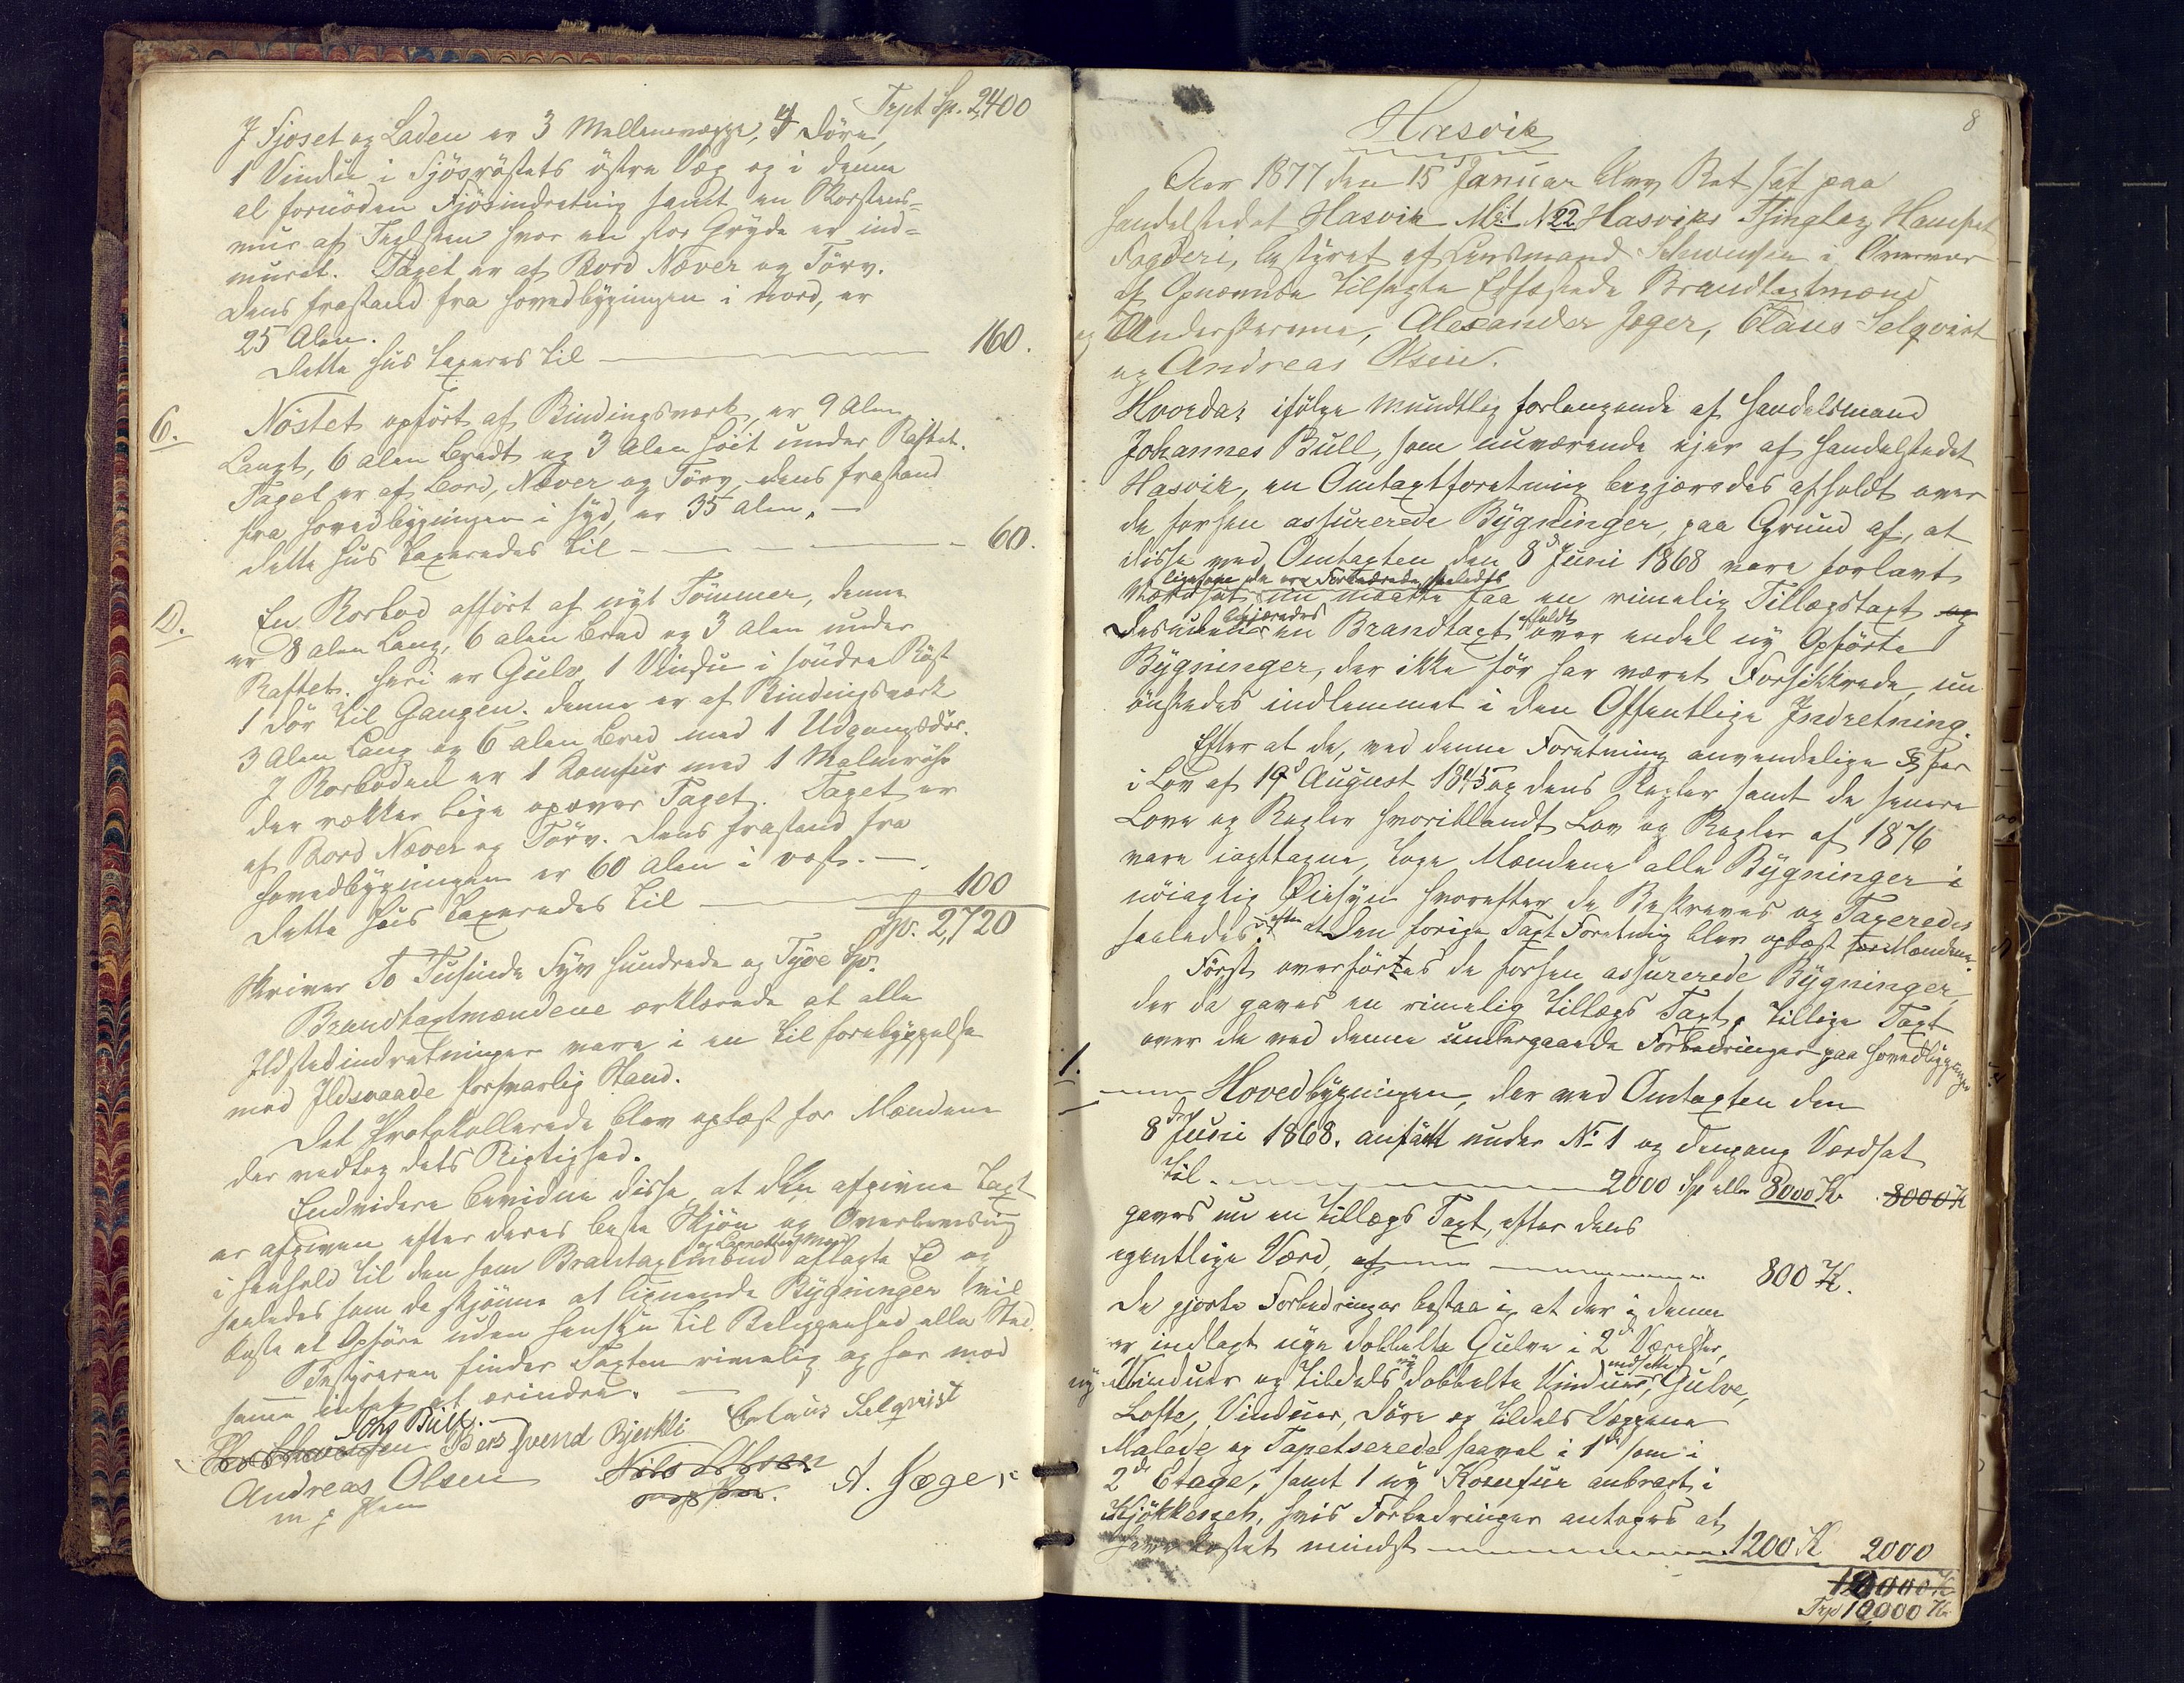 Trpt Sp. 2400
I Fjöset og Laden er 3 Mellemvægge, 4 Döre,
1 Vindu i Fjösröstets östre Væg og i denne
al fornöden Fjösindretning samt en Skorstens-
mur af Teglsten hvor en stor Gryde er ind-
muret. Taget er af Bord Næver og Törv.
Dens frastand fra Hovedbygningen i nord, er
25 Alen.
Dette Hus taxeres til 160.
6. Nöstet opfört af Bindingsværk, er 9 Alen
Langt, 6 Alen bredt og 3 Alen höit under Raftet.
Taget er af Bord, Næver og Törv, dens frastand
fra Hovedbygningen i Syd, er 35 Alen. —
Dette Hus taxeredes til 60.
D. En Rorbod opfört af nyt Tömmer, denne
er 8 Alen Lang, 6 Alen bred og 3 Alen under
Raftet. Heri er Gulv, 1 Vindu i söndre Röst
1 Dör til Gangen. Denne er af Bindingsværk
3 Alen Lang og 6 Alen bred med 1 Udgangsdör.
I Rorboden er 1 Komfur med 1 Malmrör
der rækker lige opover Taget. Taget er
af Bord Næver og Törv. Dens frastand fra
Hovedbygningen er 60 Alen i vest. —
Dette Hus taxeredes til 100
Sp. 2,720
Skriver To Tusinde Syv Hundrede og Tyve Sp.
Brandtaxtmændene erklærede at alle
Ildstedindretninger vare i en til forebyggelse
mod Ildsvaade forsvarlig Stand.
Det Protokollerede blev oplæst for Mændene
der vedtog dets Rigtighed.
Endvidere bevidne disse, at den afgivne Taxt
er afgiven efter deres beste Skjön og Overbevisning
i Henhold til den som Brantaxtmænd og Lagrettesmænd aflagte Ed og
saaledes som de skjönne at lignende Bygninger vil
koste at Opföre uden Hensyn til Beliggenhed eller Sted.
Bestyreren finder Taxten rimelig og har mod
samme intet at erindre. —
Johs Bull.
Schwensen Bers Svend Bjerkli Colaus Selqvist
Andreas Olsen Nils A. Jæger
m p Pen
8
Hasvik
Aar 1877 den 15de Januar blev Ret sat paa
Handelstedet Hasvik Mat. No 22 Hasviks Thinglag Hamfest
Fogderi, bestyret af Lensmand Schwensen i Overvær
af Opnævnte tilsagte Edfæstede Brandtaxtmænd
og Underskrevne, Alexander Jæger, Claus Selqvist
og Andreas Olsen.
Hvorda: ifölge Mundtlig forlangende af Handelsmand
Johannes Bull, som nuværende ejer af Handelstedet
Hasvik, en Omtaxtforretning begjæredes afholdt over
de forhen assurerede Bygninger, paa Grund af, at
disse ved Omtaxten den 8de Juni 1868 vare forlavt
ligesom de ere Forbedrede, saaledes
Værdsat nu maatte faa en rimelig Tillægstaxt og
Desuden begjæredes en Brandtaxt afholdt over endel ny Opförte
Bygninger, der ikke för har været Forsikkrede, nu
önskedes indlemmet i den Offentlige Indretning.
Efter at de, ved denne Forretning anvendelige §§ser
i Lov af 19de August 1845 og dens Regler samt de senere
Love og Regler hvoriblandt Lov og Regler af 1876
vare iagttagne, toge Mændene alle Bygninger i
nöiagtig Öiesyn hvorefter de Beskreves og Taxeredes
saaledes: efter at Den forige Taxt Forretning blev oplæst for Mændene.
Först overförtes de forhen assurerede Bygninger,
der da gaves en rimelig tillægs Taxt, tillige Taxt
over de ved denne undergaaede Forbedringer paa Hovedbygningen
1. Hovedbygningen, der ved Omtaxten den
8de Juni 1868. anfört under No 1 og dengang Værdsat
til. 2000 Sp eller 8000 Kr. 8000 Kr
gaves nu en tillægs Taxt, efter dens
egentlige Værd, af 800 Kr.
De gjorte Forbedringer bestaa i, at der i denne
er indlagt nye dobbelte Gulve i 2de Værelser,
nye Vinduer og tildels ny dobbelte Vinduer indsatte, Gulve,
Lofte, Vinduer, Döre og tildels Væggene
Malede og Tapetserede saavel i 1ste som i
2de Etage, samt 1 ny Komfur anbragt i
Kjökkenet, hvis Forbedringer antages at
have kostet mindst 1200 Kr 2000
10000 Kr
Trp 10000 Kr